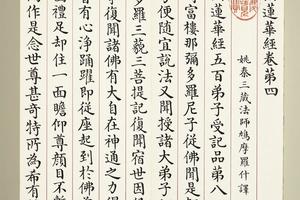 蓮華經卷第四
姚秦三藏法師鳩摩羅什譯
蓮華經五百弟子受記品第八
富樓那彌多羅尼子從佛聞是
便隨宜說法又聞授諸大弟子
多羅三藐三菩提記復聞宿世因
復聞諸佛有大自在神通之力得
有心淨踊躍即從座起到於佛前
禮足却住一面瞻仰尊顏目不暫
作是念世尊甚奇特所為希有